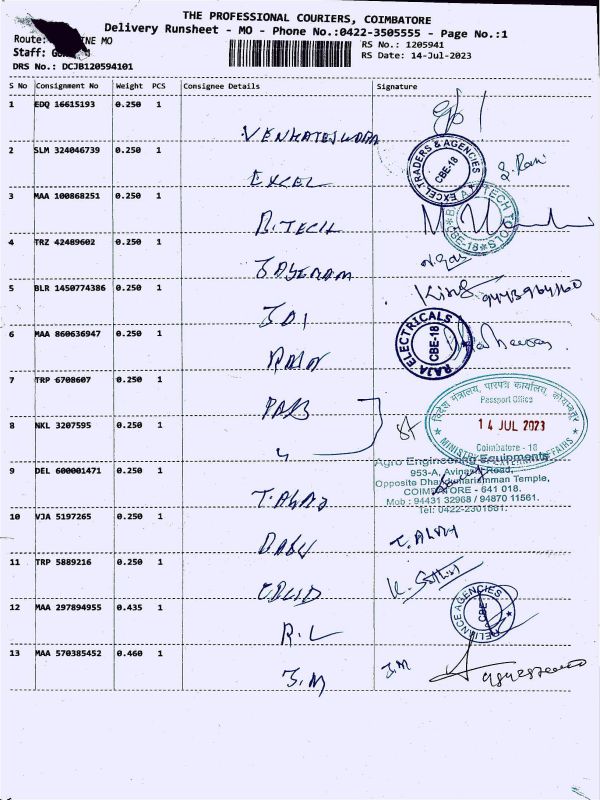 THE PROFESSIONAL COURIERS, COIMBATORE
Delivery Runsheet - MO - Phone No.:0422-3505555 - Page No.:1
Route: INE MO
RS No.: 1205941
Staff:
RS Date: 14-Jul-2023
DRS No.: DCJB120594101
S No Consignment No Weight PCS Consignee Details Signature
1 EDQ 16615193 0.250 1
VENKATESWARA
2 SLM 324046739 0.250 1
EXCEL
EXCEL TRADERS & AGENCIES
CBE-18
3 MAA 100868251 0.250 1
B.TECH
TECH TOOLS
CBE-18
4 TRZ 42489602 0.250 1
JAYARAM
5 BLR 1450774386 0.250 1
King
6 MAA 860636947 0.250 1
RAJA
RAJA ELECTRICALS
CBE-18
7 TRP 6708607 0.250 1
विदेश मंत्रालय, पारपत्र कार्यालय, कोयम्बतूर
Passport Office
14 JUL 2023
Coimbatore - 18
MINISTRY OF EXTERNAL AFFAIRS
8 NKL 3207595 0.250 1
Agro Engineering Equipments
953-A, Avinashi Road,
Opposite Dhandumariamman Temple,
COIMBATORE - 641 018.
Mob : 94431 32968 / 94870 11561.
Tel: 0422-2301581.
9 DEL 600001471 0.250 1
10 VJA 5197265 0.250 1
BABU
11 TRP 5889216 0.250 1
12 MAA 297894955 0.435 1
R.L
RELIANCE AGENCIES
CBE
13 MAA 570385452 0.460 1
J.M
J.M